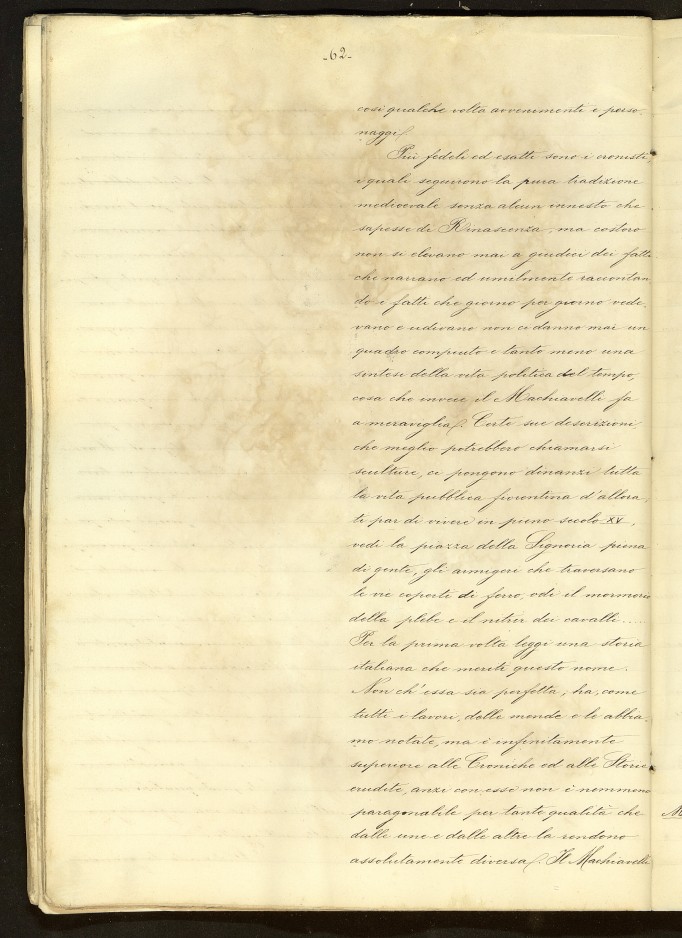 -62-
così qualche volta avvenimenti e perso-
naggi.
Più fedeli ed esatti sono i cronisti,
i quali seguirono la pura tradizione
medioevale senza alcun innesto che
sapesse di Rinascenza, ma costoro
non si elevano mai a giudici dei fatti
che narrano ed umilmente raccontan-
do i fatti che giorno per giorno vede-
vano e udivano non ci danno mai un
quadro compiuto e tanto meno una
sintesi della vita politica del tempo,
cosa che invece il Machiavelli fa
a meraviglia. Certe sue descrizioni
che meglio potrebbero chiamarsi
sculture, ci pongono dinanzi tutta
la vita pubblica fiorentina d'allora
ti par di vivere in pieno secolo XV,
vedi la piazza della Signoria piena
di gente, gli armigeri che traversano
le vie coperti di ferro, odi il mormorio
della plebe e il nitrir dei cavalli.....
Per la prima volta leggi una storia
italiana che meriti questo nome.
Non ch'essa sia perfetta, ha, come
tutti i lavori, delle mende e le abbia-
mo notate, ma è infinitamente
superiore alle Croniche ed alle Storie
erudite, anzi con esse non è nemmeno
paragonabile per tante qualità che
dalle une e dalle altre la rendono
assolutamente diversa. Il Machiavelli